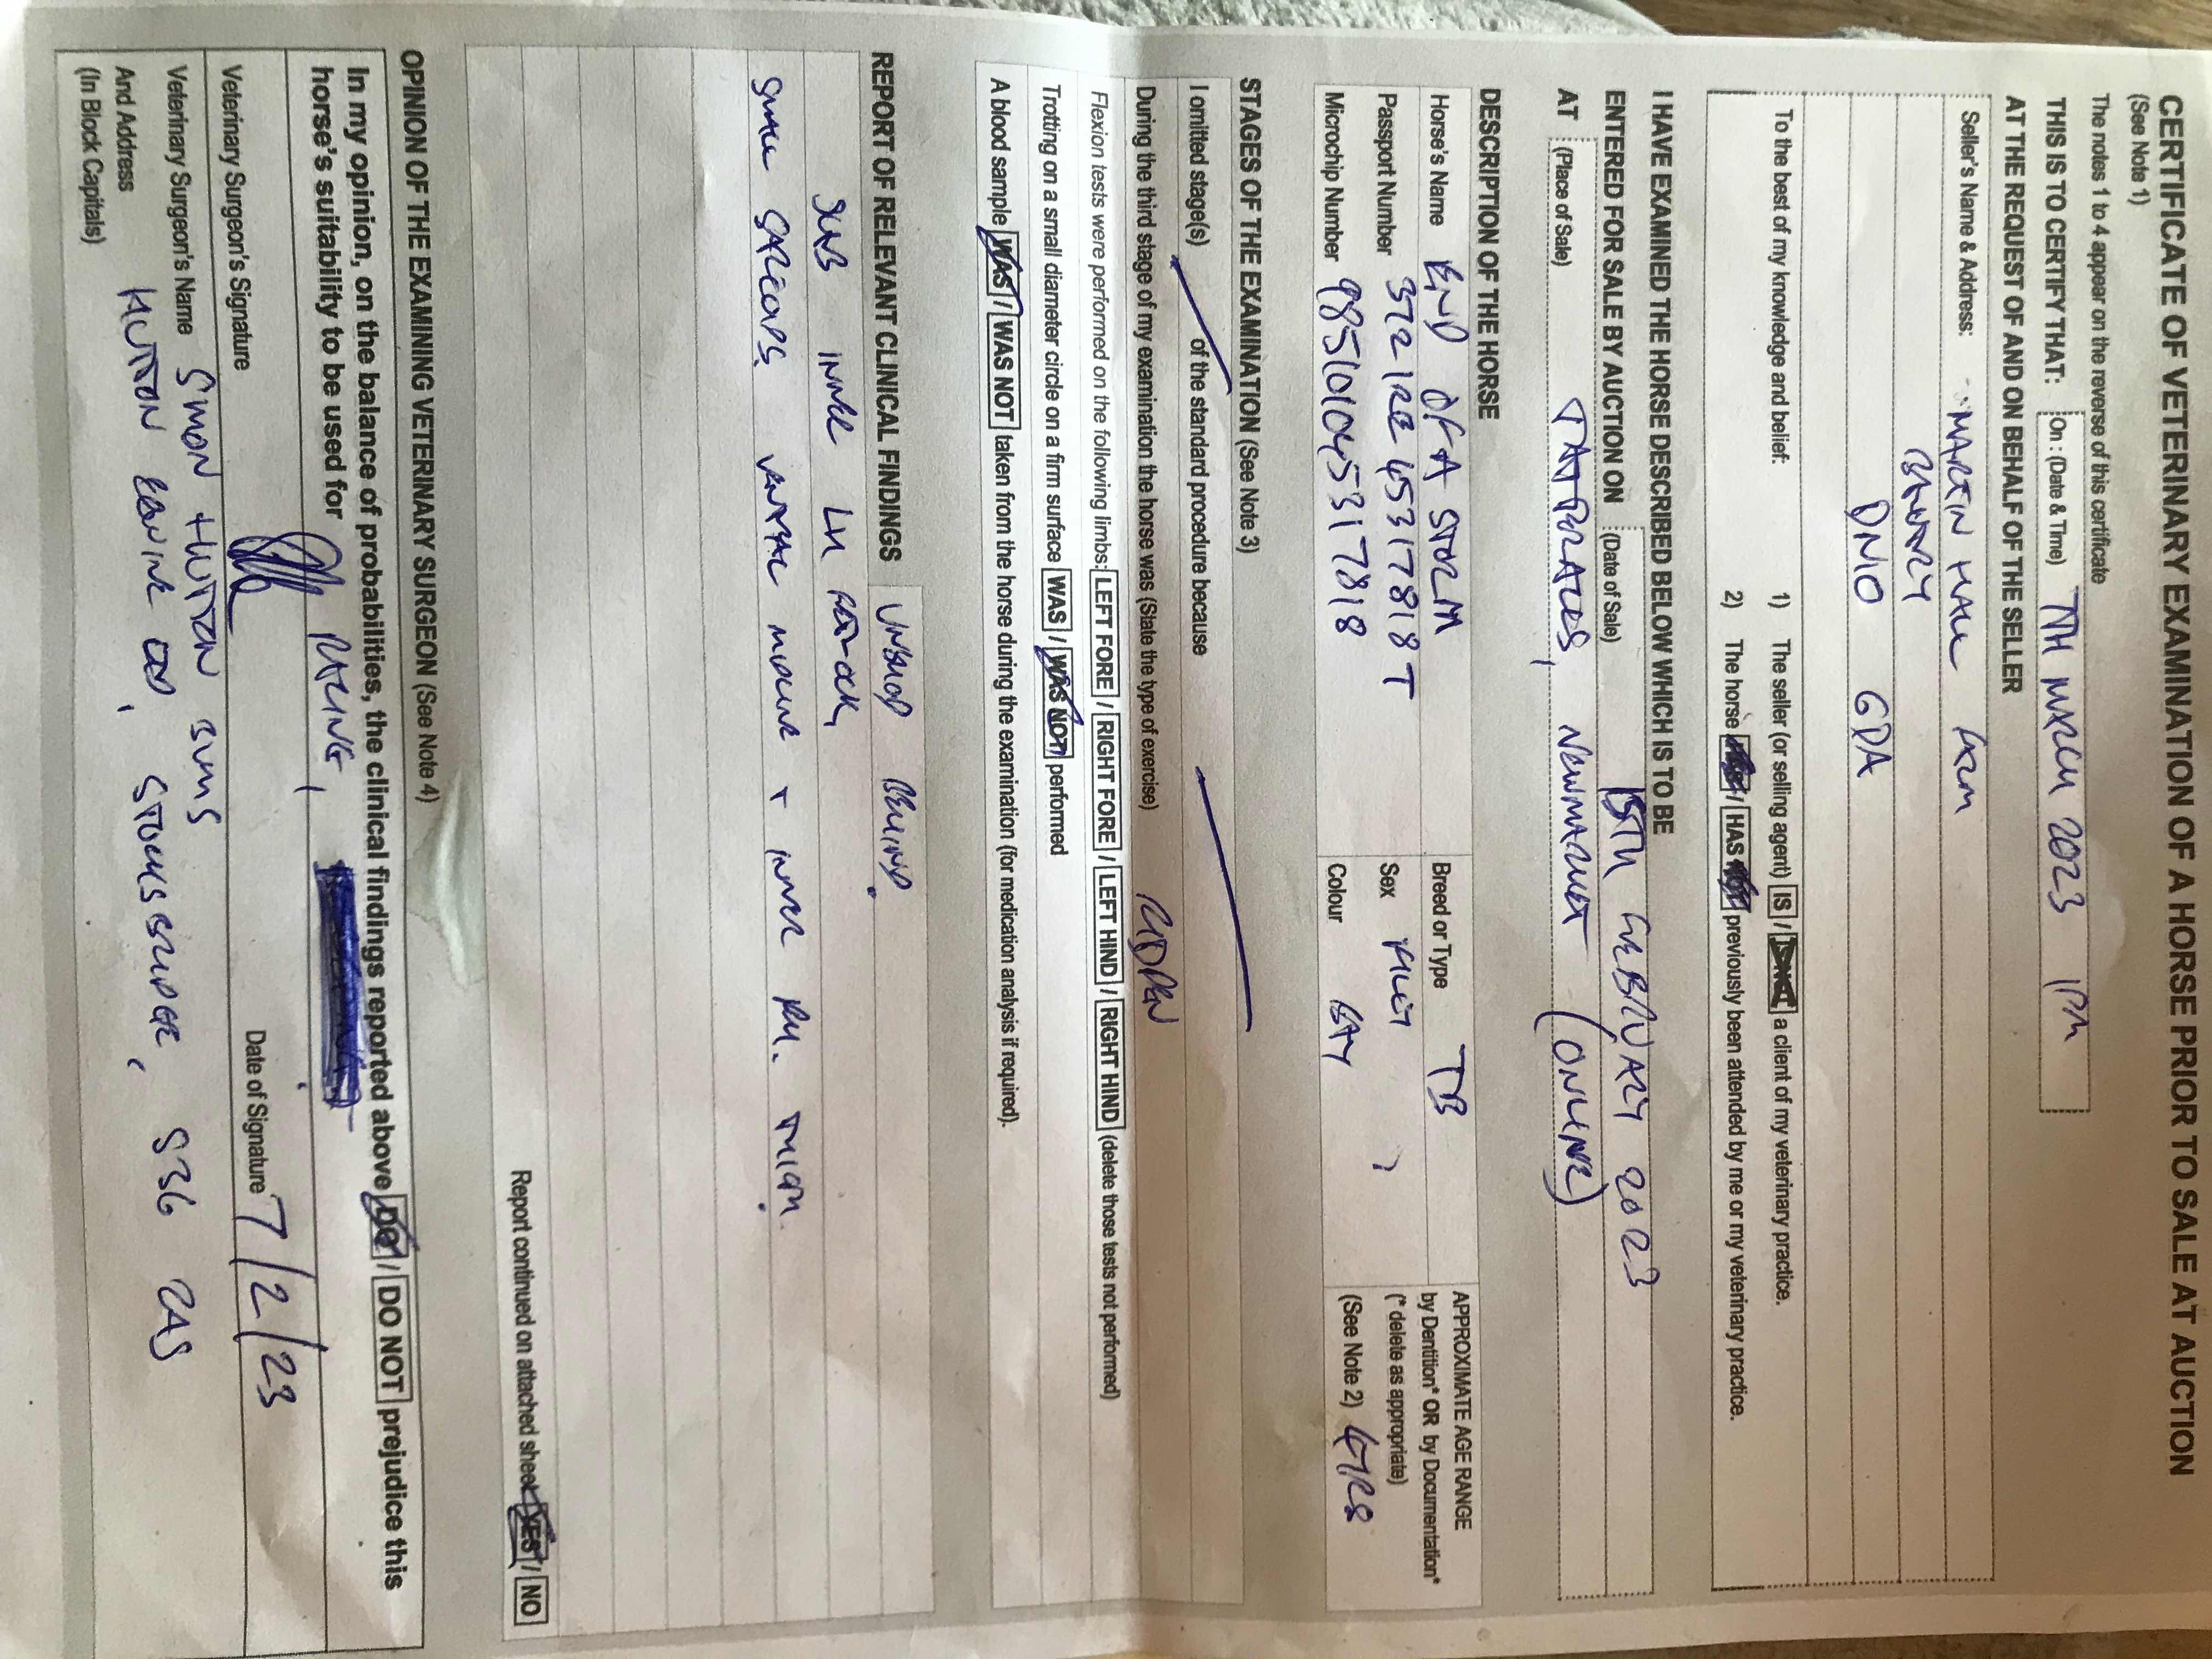 CERTIFICATE OF VETERINARY EXAMINATION OF A HORSE PRIOR TO SALE AT AUCTION
(See Note 1)
The notes 1 to 4 appear on the reverse of this certificate
THIS IS TO CERTIFY THAT: On : (Date & Time) 7TH MARCH 2023 1PM
AT THE REQUEST OF AND ON BEHALF OF THE SELLER
Seller's Name & Address: MARTIN HALL FARM
BANTRY
DN10 6DA
To the best of my knowledge and belief: 1) The seller (or selling agent) IS / a client of my veterinary practice.
2) The horse / HAS previously been attended by me or my veterinary practice.
I HAVE EXAMINED THE HORSE DESCRIBED BELOW WHICH IS TO BE
ENTERED FOR SALE BY AUCTION ON (Date of Sale) 15TH FEBRUARY 2023
AT (Place of Sale) TATTERSALLS, NEWMARKET (ONLINE)
DESCRIPTION OF THE HORSE
Horse's Name END OF A STORM Breed or Type TB APPROXIMATE AGE RANGE
Passport Number 372 IRE 45317818 T Sex FILLY by Dentition* OR by Documentation*
(* delete as appropriate)
Microchip Number 985101045317818 Colour BAY (See Note 2) 4YRS
STAGES OF THE EXAMINATION (See Note 3)
I omitted stage(s) of the standard procedure because
During the third stage of my examination the horse was (State the type of exercise) RIDDEN
Flexion tests were performed on the following limbs: LEFT FORE / RIGHT FORE / LEFT HIND / RIGHT HIND (delete those tests not performed)
Trotting on a small diameter circle on a firm surface WAS / WAS NOT performed
A blood sample WAS / WAS NOT taken from the horse during the examination (for medication analysis if required).
REPORT OF RELEVANT CLINICAL FINDINGS UNSHOD BEHIND.
INNER LH FETLOCK
SMALL SARCOIDS VENTRAL MIDLINE + INNER RH. THIGH.
Report continued on attached sheet YES / NO
OPINION OF THE EXAMINING VETERINARY SURGEON (See Note 4)
In my opinion, on the balance of probabilities, the clinical findings reported above DO / DO NOT prejudice this
horse's suitability to be used for RACING,
Veterinary Surgeon's Signature Date of Signature 7/2/23
Veterinary Surgeon's Name SIMON HUTTON BVMS
And Address HUTTON EQUINE LTD, STOCKSBRIDGE, S36 2AS
(In Block Capitals)